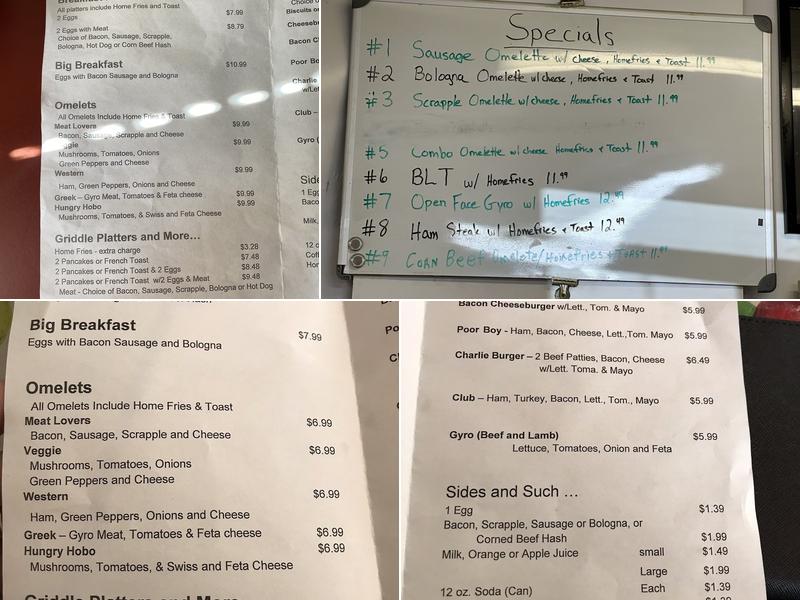 Breakfast
All platters include Home Fries and Toast
2 Eggs $7.99
2 Eggs with Meat $8.79
Choice of Bacon, Sausage, Scrapple,
Bologna, Hot Dog or Corn Beef Hash
Big Breakfast $10.99
Eggs with Bacon Sausage and Bologna
Omelets
All Omelets Include Home Fries & Toast
Meat Lovers $9.99
Bacon, Sausage, Scrapple and Cheese
ggie $9.99
Mushrooms, Tomatoes, Onions
Green Peppers and Cheese
Western $9.99
Ham, Green Peppers, Onions and Cheese
Greek – Gyro Meat, Tomatoes & Feta cheese $9.99
Hungry Hobo $9.99
Mushrooms, Tomatoes, & Swiss and Feta Cheese
Griddle Platters and More...
Home Fries - extra charge $3.28
2 Pancakes or French Toast $7.48
2 Pancakes or French Toast & 2 Eggs $8.48
2 Pancakes or French Toast w/2 Eggs & Meat $9.48
Meat - Choice of Bacon, Sausage, Scrapple, Bologna or Hot Dog
Biscuits or
Cheeseb
Bacon C
Poor Bo
Charlie
w/Let
Club –
Gyro (
Side
1 Egg
Baco
Milk,
12 o
Coff
Hor
Specials
#1 Sausage Omelette w/ cheese, Homefries & Toast 11.99
#2 Bologna Omelette w/cheese, Homefries & Toast 11.99
#3 Scrapple Omelette w/cheese, Homefries & Toast 11.99
#5 Combo Omelette w/cheese Homefries & Toast 11.99
#6 BLT w/ Homefries 11.99
#7 Open Face Gyro w/ Homefries 12.49
#8 Ham Steak w/ Homefries & Toast 12.49
#9 Corn Beef Omelete/Homefries & Toast 11.99
Big Breakfast $7.99
Eggs with Bacon Sausage and Bologna
Omelets
All Omelets Include Home Fries & Toast
Meat Lovers $6.99
Bacon, Sausage, Scrapple and Cheese
Veggie $6.99
Mushrooms, Tomatoes, Onions
Green Peppers and Cheese
Western $6.99
Ham, Green Peppers, Onions and Cheese
Greek – Gyro Meat, Tomatoes & Feta cheese $6.99
Hungry Hobo $6.99
Mushrooms, Tomatoes, & Swiss and Feta Cheese
Griddle Platters and More
Po
Cl
Bacon Cheeseburger w/Lett., Tom. & Mayo $5.99
Poor Boy - Ham, Bacon, Cheese, Lett.,Tom. Mayo $5.99
Charlie Burger – 2 Beef Patties, Bacon, Cheese $6.49
w/Lett. Toma. & Mayo
Club – Ham, Turkey, Bacon, Lett., Tom., Mayo $5.99
Gyro (Beef and Lamb) $5.99
Lettuce, Tomatoes, Onion and Feta
Sides and Such ...
1 Egg $1.39
Bacon, Scrapple, Sausage or Bologna, or
Corned Beef Hash $1.99
Milk, Orange or Apple Juice small $1.49
Large $1.99
12 oz. Soda (Can) Each $1.39